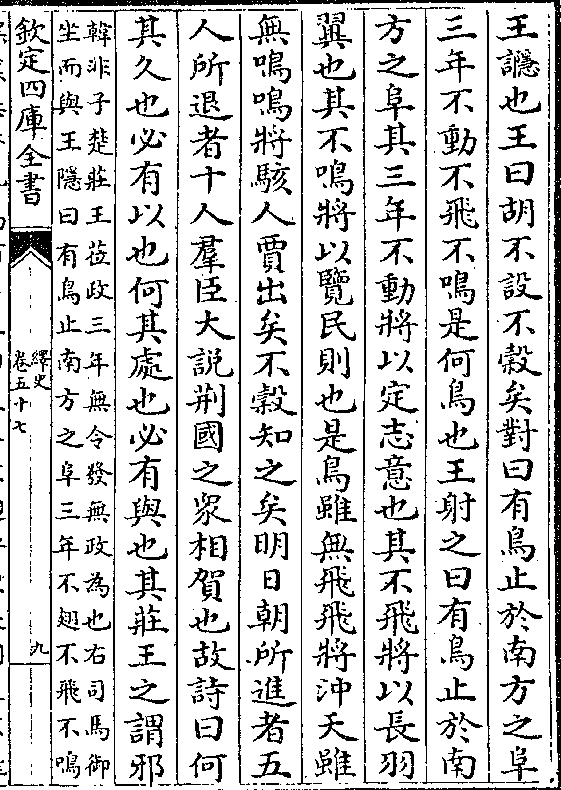 王讔也王曰胡不設不穀矣對曰有鳥止於南方之阜
三年不動不飛不鳴是何鳥也王射之曰有鳥止於南
方之阜其三年不動將以定志意也其不飛將以長羽
翼也其不鳴將以覽民則也是鳥雖無飛飛將沖天雖
無鳴鳴將駭人賈出矣不穀知之矣明日朝所進者五
人所退者十人羣臣大説荆國之衆相賀也故詩曰何
其久也必有以也何其處也必有與也其莊王之謂邪
韓非子楚莊王莅政三年無令發無政為也右司馬御
坐而與王隱曰有鳥止南方之阜三年不翅不飛不鳴
欽定四庫全書
繹史
卷五十七
九